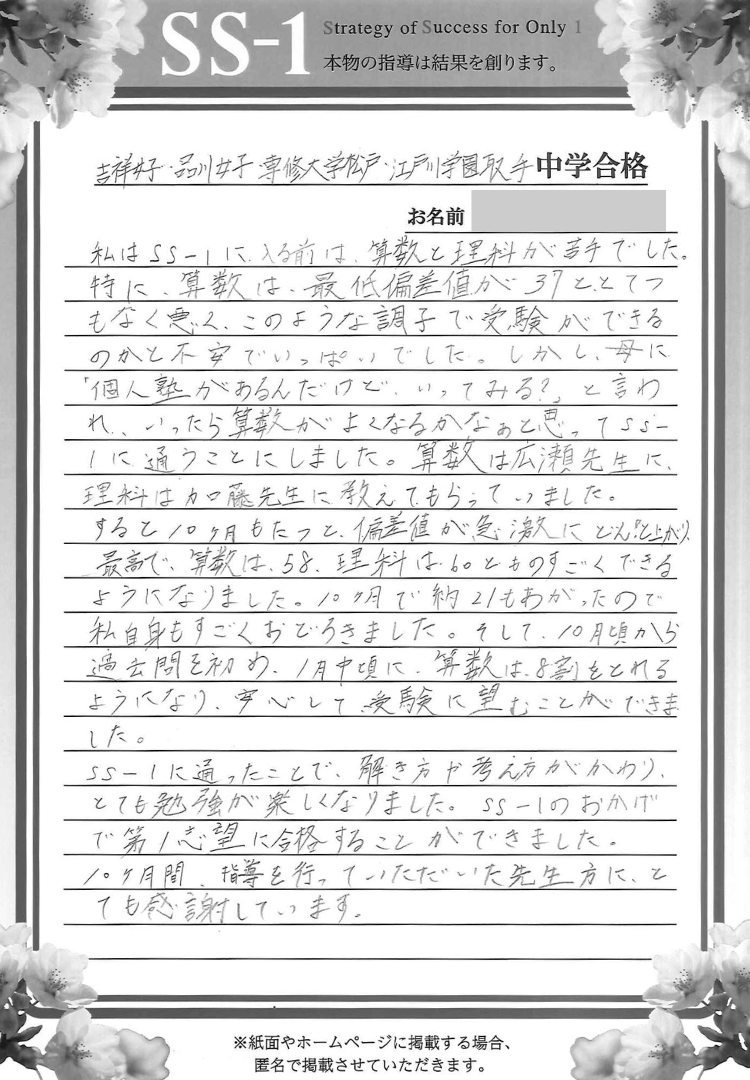 SS-1
Strategy of Success for Only 1
本物の指導は結果を創ります。
吉祥女子・品川女子・専修大学松戸・江戸川学園取手 中学合格
お名前
私はSS-1に、入る前は、算数と理科が苦手でした。
特に、算数は、最低偏差値が37と、とてつ
もなく悪く、このような調子で受験ができる
のかと不安でいっぱいでした。しかし、母に
「個人塾があるんだけど、いってみる?」と言わ
れ、いったら算数がよくなるかなぁと思ってSS-
1に通うことにしました。算数は広瀬先生に、
理科は加藤先生に教えてもらっていました。
すると10ヶ月もたつと、偏差値が急激にどんどと上がり、
最高で、算数は、58、理科は、60とものすごくできる
ようになりました。10ヶ月で約21もあがったので
私自身もすごくおどろきました。そして、10月頃から
過去問を初め、1月中頃に、算数は、8割をとれる
ようになり、安心して、受験に望むことができま
した。
SS-1に通ったことで、解き方や考え方がかわり、
とても勉強が楽しくなりました。SS-1のおかげ
で第1志望に合格することができました。
10ヶ月間、指導を行っていただいた先生方に、と
ても感謝しています。
※紙面やホームページに掲載する場合、
匿名で掲載させていただきます。